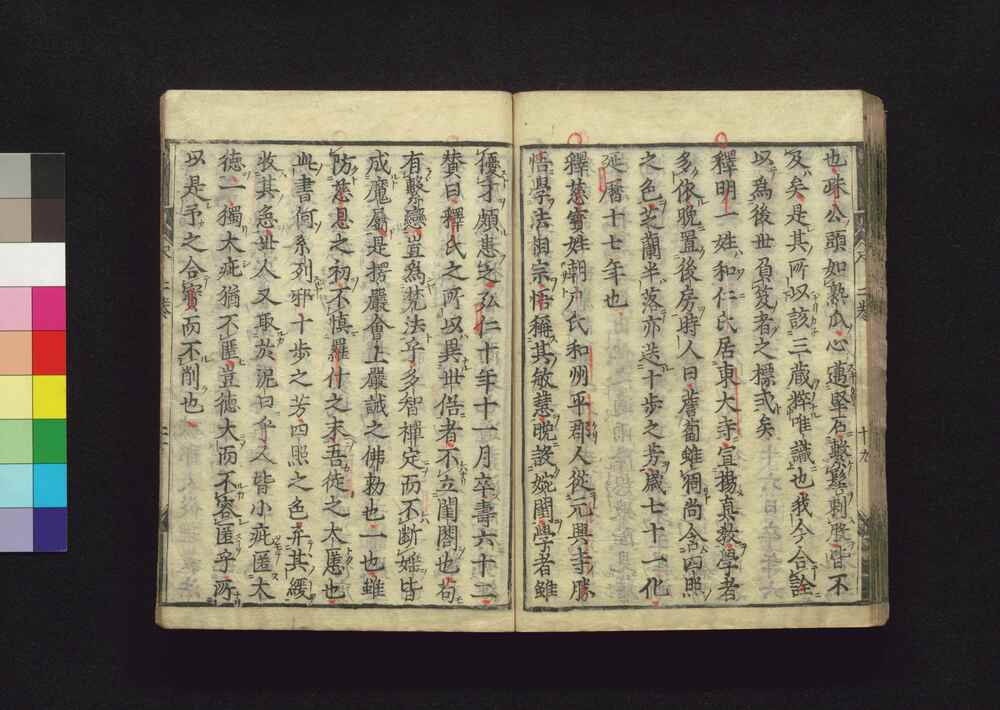 也咮公頭如熟瓜心寔堅石繫窓刺股皆不
及矣是其所以該三藏粹唯識也我今合論
以爲後世負笈者之標弐矣
釋明一姓和仁氏居東大寺宣揚眞教學者
多依晩置後房時人曰薝蔔雖凋尚含四照
之色芝蘭半落亦送十歩之芳歳七十一化
延曆十七年也
釋慈寶姓朝戸氏和州平郡人從元興寺勝
悟學法相宗悟稱其敏慧晩設婉閫學者雖
優才頗患之弘仁十年十一月卒壽六十二
賛曰釋氏之所以異世俗者不立閨閤也苟
有繫戀豈爲梵法乎多智禪定而不斷婬皆
成魔屬是楞嚴會上嚴誡之佛勅也一也雖
防慈恩之初不愼羅什之末吾徒之大慝也
此書何系列邪十歩之芳四照之色弃其緩
收其急世人又取於泥曰乎人皆小疵匿大
德一獨大疵猶不匿豈德大而不容匿乎所
以是予之合寶而不削也
二卷
十九